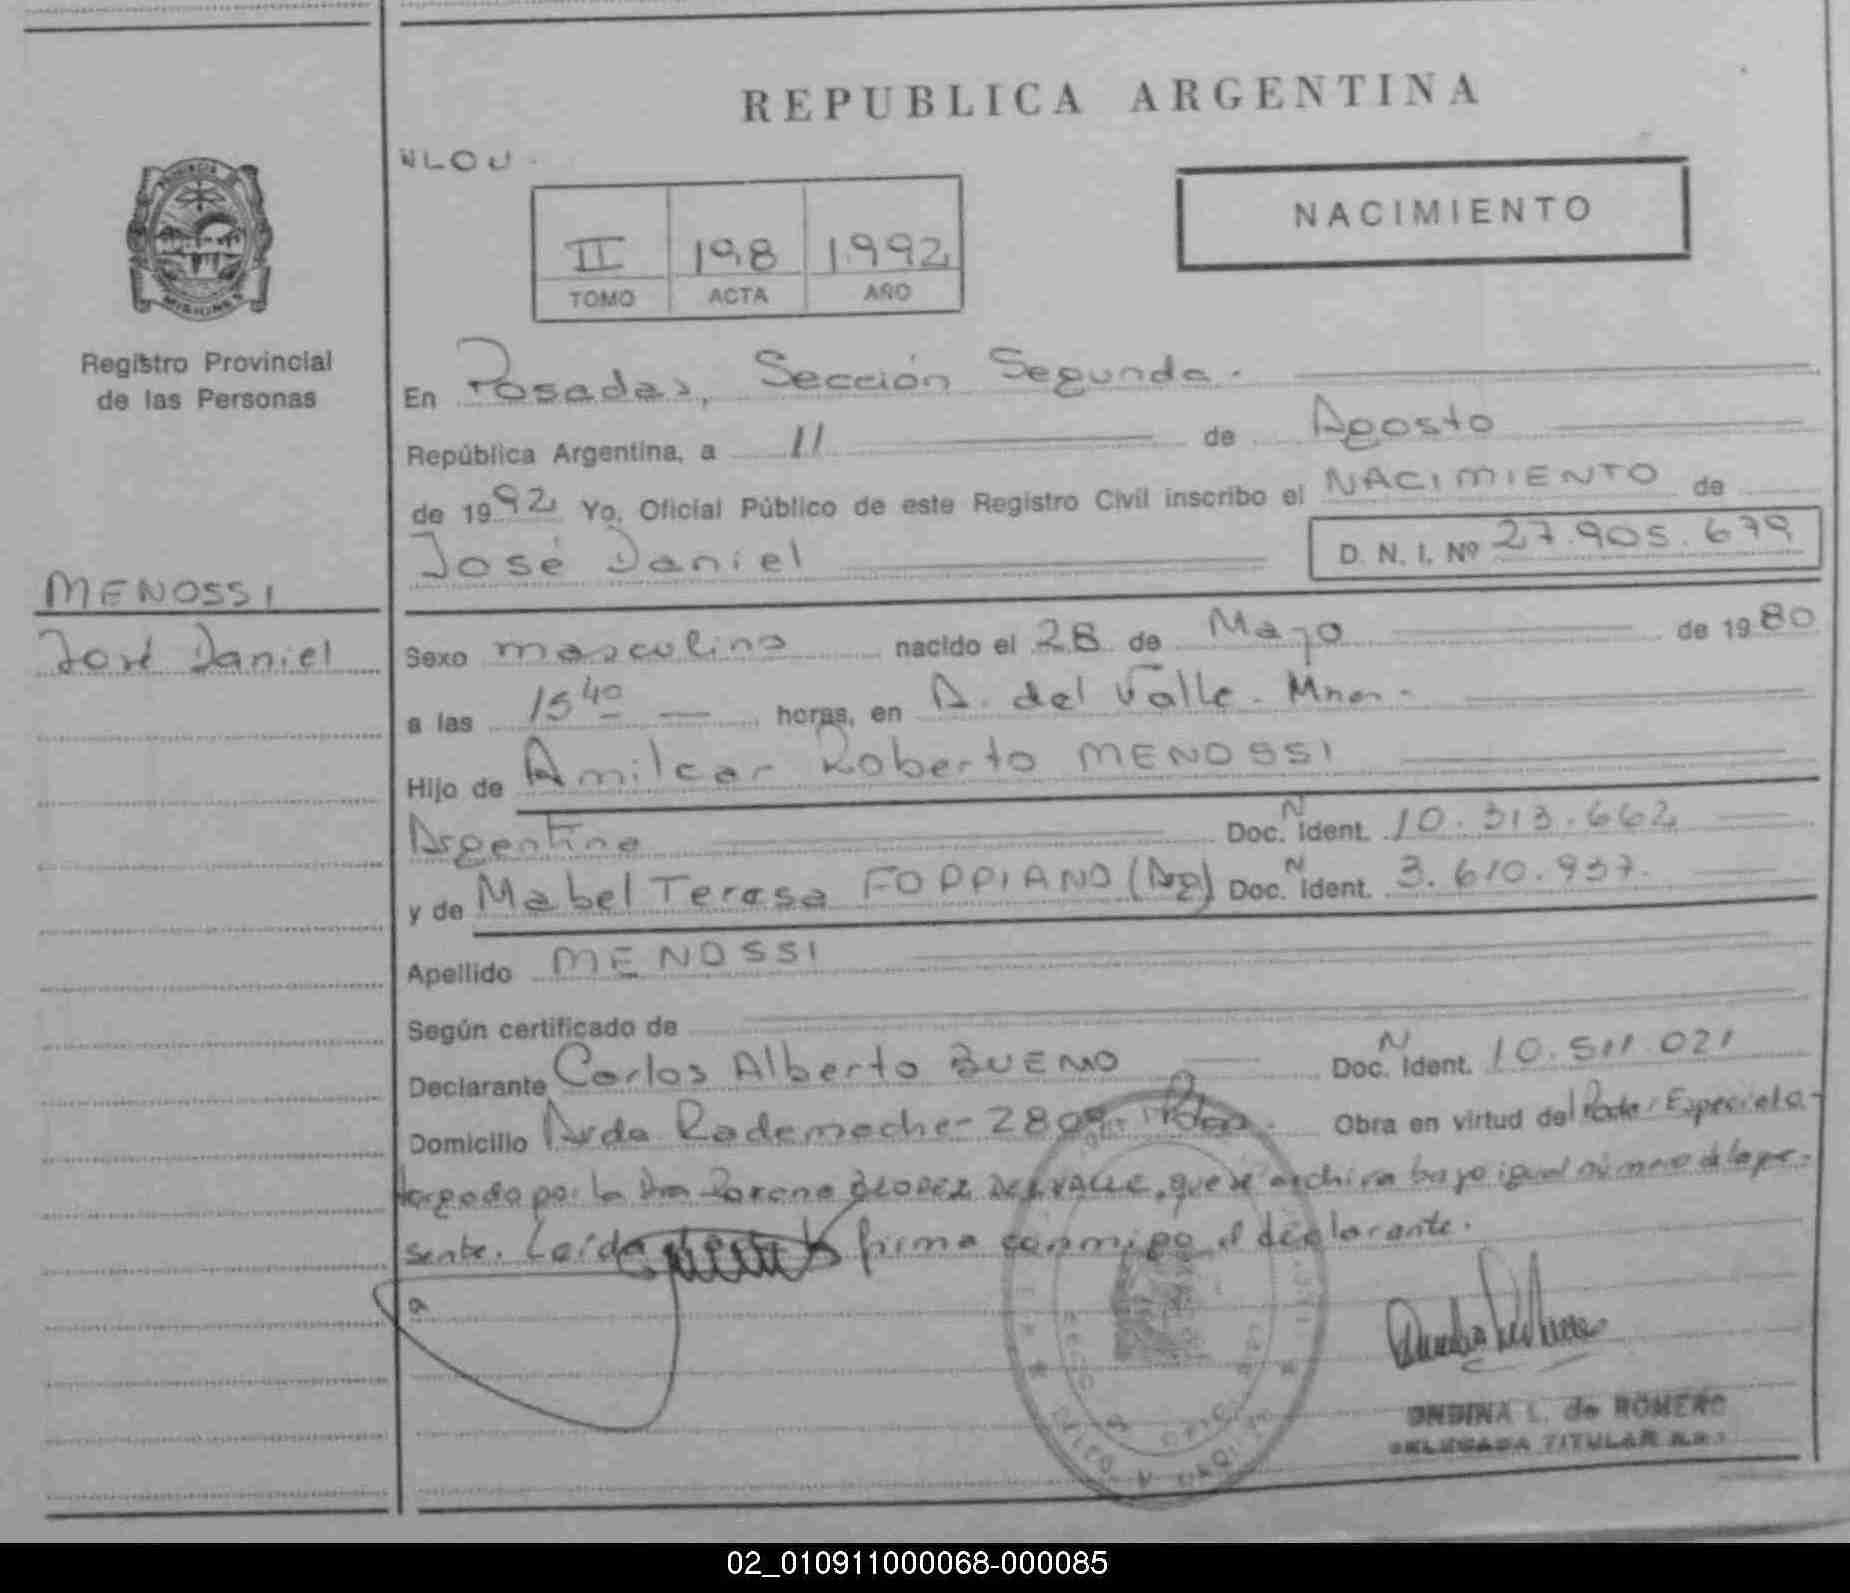 REPUBLICA ARGENTINA
NLOU.
NACIMIENTO
II 198 1992
TOMO ACTA AÑO
PROVINCIA
MISIONES
Registro Provincial
de las Personas
En Posadas, Sección Segunda.
República Argentina, a 11 de Agosto
de 1992 Yo, Oficial Público de este Registro Civil inscribo el NACIMIENTO de
José Daniel D. N. I. Nº 27.905.679
MENOSSI
José Daniel
Sexo masculino nacido el 28 de Mayo de 1980
a las 15 40 horas, en A. del Valle - Mnes.
Hijo de Amilcar Roberto MENOSSI
Argentina Doc. N Ident. 10.313.662
y de Mabel Teresa FOPPIANO (Arg) Doc. N Ident. 3.610.937.
Apellido MENOSSI
Según certificado de
Declarante Carlos Alberto BUENO Doc. N Ident. 10.511.021
Domicilio Avda Rademacher 2809 - Pdas. Obra en virtud del Poder Especial o-
torgado por la Dra DEL VALLE, que se archiva bajo igual número de la pre-
sente. Leída firma conmigo el declarante.
ONDINA L. de ROMERO
DELEGADA TITULAR
02_010911000068-000085